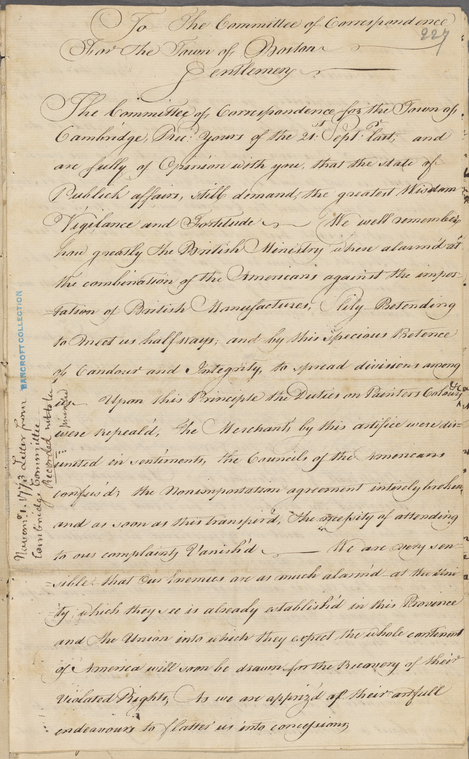 To The Committee of Correspondence
227
For the Town of Boston
Gentlemen
The Committee of Correspondence for the Town of
Cambridge, Rec.d yours of the 21.st Sept.r last, and
are fully of Opinion with you, that the state of
Publick affairs, still demand, the greatest Wisdom
Vigilance and Fortitude — We well remember
how greatly the British Ministry where alarm'd at
the combination of the Americans against the impor
tation of British Manufactures, Slily Pretending
to meet us halfways; and by this Specious Pretence
of Candour and Integrity, to spread divisions among
us. Upon this Principle the Duties on Painters Colours &ca
were Repeal'd, The Merchants by this artifice were dis
united in sentiments, the Councils of the Americans
confus'd, the Nonimportation agreement intirely broken,
and as soon as this transpir'd, the necessity of attending
to our complaints Vanish'd — We are very sen=
sible that Our Enemies are as much alarm'd at the Uni
ty, which they see is already establish'd in this Province
and the Union into which they expect the whole continent
of America will soon be drawn, for the Recovery of their
Violated Rights, As we are appriz'd of their artfull
endeavours to flatter us into concessions,
BANCROFT COLLECTION
Novem.r 1773 Letter from
Cambridge Committee
Recorded not to be
printed